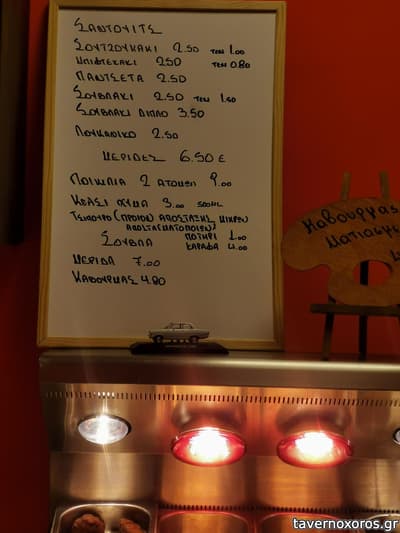 ΣΑΝΤΟΥΙΤΣ
ΣΟΥΤΖΟΥΚΑΚΙ 2.50 ΤΕΜ 1.00
ΜΠΙΦΤΕΚΑΚΙ 2.50 ΤΕΜ 0.80
ΠΑΝΤΣΕΤΑ 2.50
ΣΟΥΒΛΑΚΙ 2.50 ΤΕΜ 1.50
ΣΟΥΒΛΑΚΙ ΔΙΠΛΟ 3.50
ΛΟΥΚΑΝΙΚΟ 2.50
ΜΕΡΙΔΕΣ 6.50 €
ΠΟΙΚΙΛΙΑ 2 ΑΤΟΜΩΝ 9.00
ΚΡΑΣΙ ΧΥΜΑ 3.00 500ML
ΤΣΙΠΟΥΡΟ (ΠΡΟΙΟΝ ΑΠΟΣΤΑΞΗΣ ΜΙΚΡΩΝ
ΑΠΟΣΤΑΓΜΑΤΟΠΟΙΩΝ)
ΠΟΤΗΡΙ 1.00
ΣΟΥΒΛΑ ΚΑΡΑΦΑ 4.00
ΜΕΡΙΔΑ 7.00
ΚΑΒΟΥΡΜΑΣ 4.80
Καβουρμας
tavernoxoros.gr